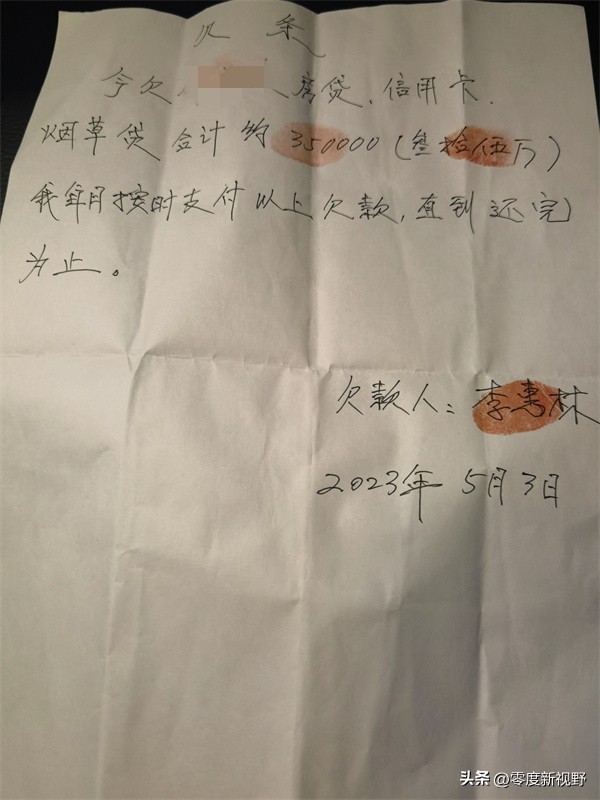 条
今欠 房贷、信用卡.
烟草贷合计约350000(叁拾伍万)
我每月按时支付以上欠款,直到还完
为止。
欠款人:李惠林
2023年 5月3日
头条 @零度新视野